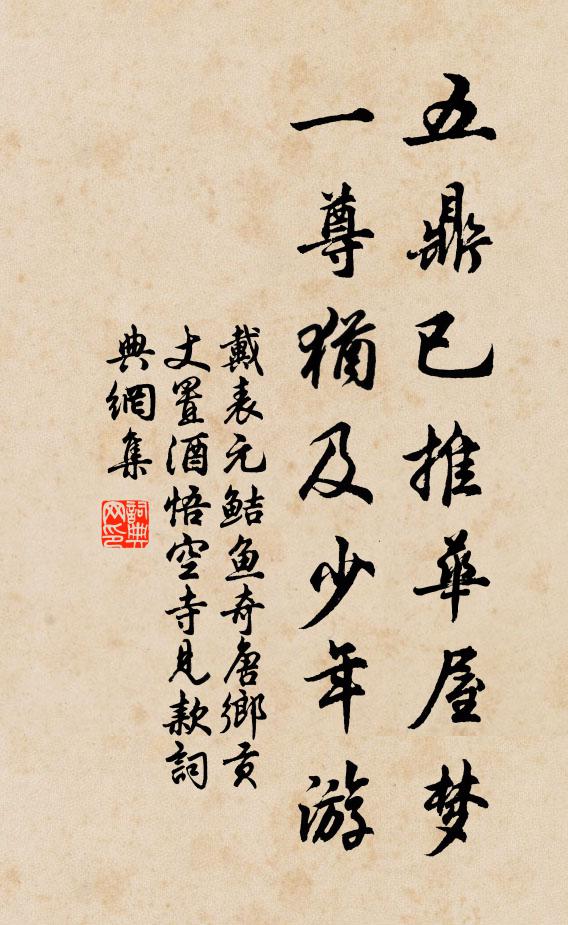 五鼎已推華屋梦
一尊猶及少年游
戴表元鲒鱼奇唐鄉贡
丈置酒悟空寺見款詞
典網集
詞典网印